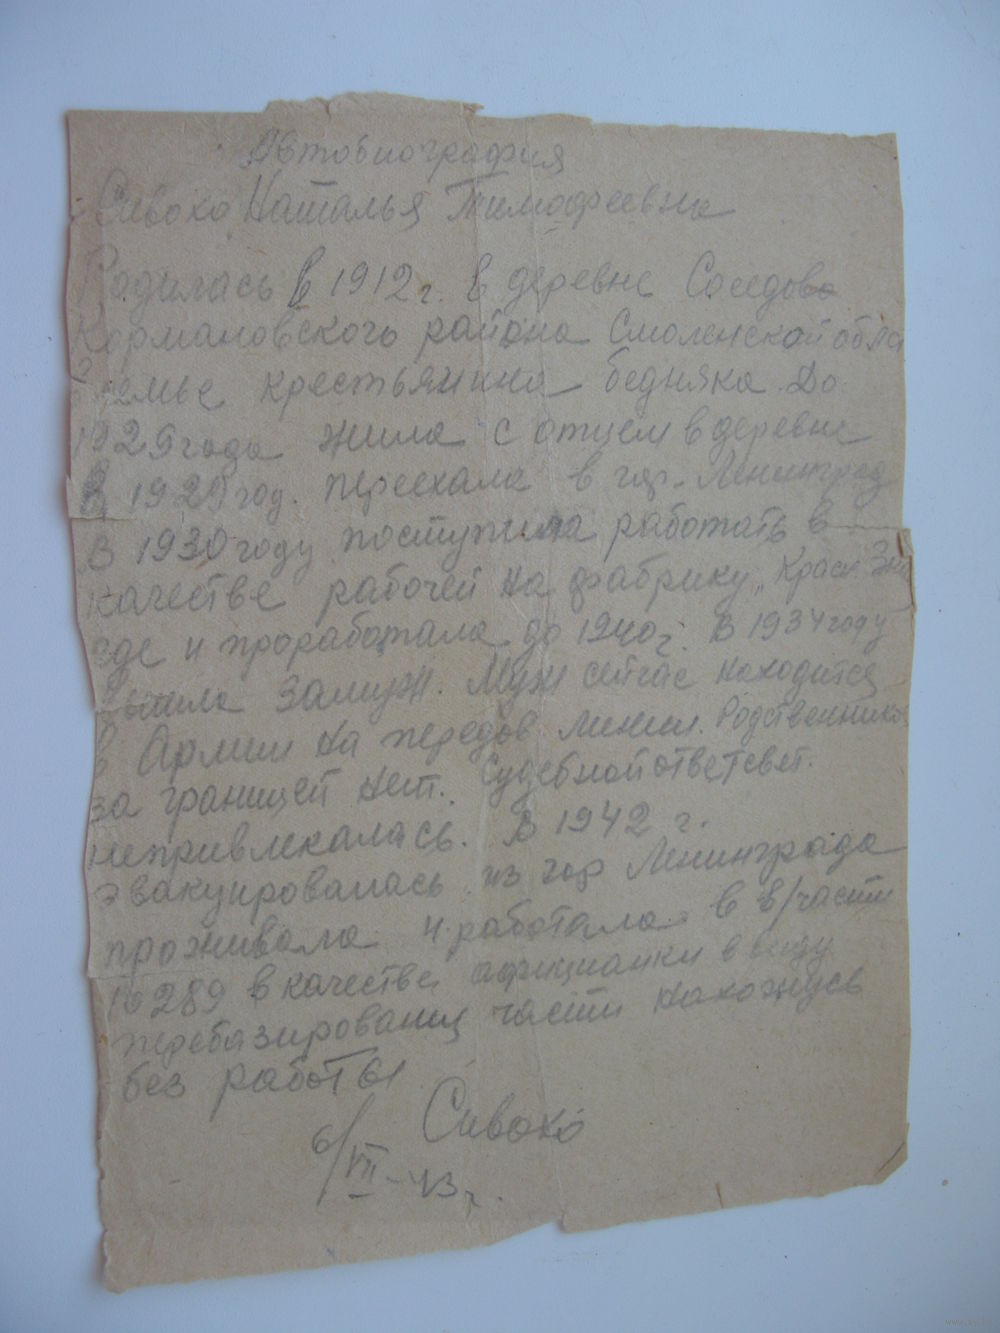 Автобиография
Сивохо Наталья Тимофеевна
Родилась в 1912 г. в деревне Соседово
Кормановского района Смоленской обла
семье крестьянина бедняка. До
1929 года жила с отцем в деревне
В 1929 год. переехала в гор. Ленинград
В 1930 году поступила работать в
качестве рабочей на фабрику „Красн.
где и проработала до 1940 г. В 1934 году
вышла замуж. Муж сейчас находится
в Армии на передов. линии. Родственников
за границей нет. Судебной ответсвет.
непривлекалась. В 1942 г.
эвакуировалась из гор Ленинграда
проживала и работала в в/части
10289 в качестве официанки в виду
перебазирования части нахожусь
без работы
Сивохо
6/VII-43 г.